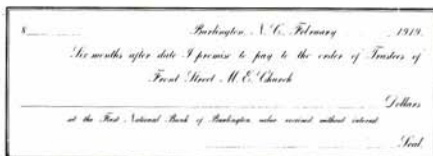 $ Burlington, N. C., February 1919.
Six months after date I promise to pay to the order of Trustees of
Front Street M. E. Church
Dollars
at the First National Bank of Burlington value received without interest
Seal.